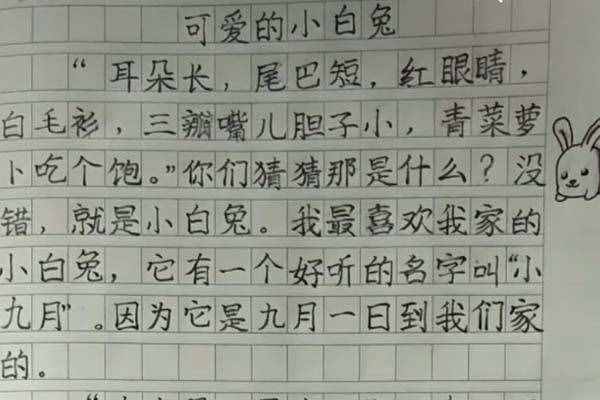 可爱的小白兔
“耳朵长，尾巴短，红眼睛，
白毛衫，三瓣嘴儿胆子小，青菜萝
卜吃个饱。”你们猜猜那是什么？没
错，就是小白兔。我最喜欢我家的
小白兔，它有一个好听的名字叫“小
九月”。因为它是九月一日到我们家
的。